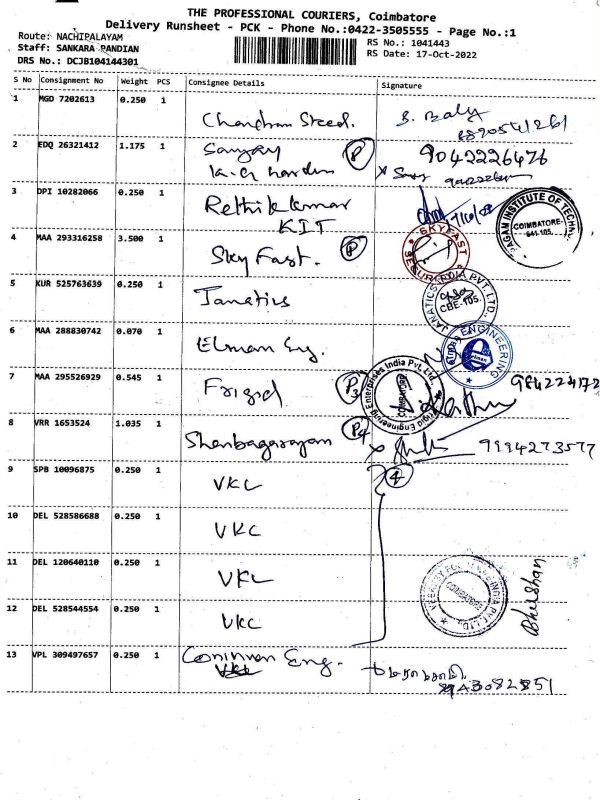 THE PROFESSIONAL COURIERS, Coimbatore
Delivery Runsheet - PCK - Phone No.:0422-3505555 - Page No.:1
Route: NACHIPALAYAM
Staff: SANKARA PANDIAN
DRS No.: DCJB104144301
RS No.: 1041443
RS Date: 17-Oct-2022
S No Consignment No Weight PCS Consignee Details Signature
1 MGD 7202613 0.250 1 Chandran Steed. S. Balu
2 EDQ 26321412 1.175 1 Sanjay P 9042226476
3 DPI 10282066 0.250 1 Rethikkumar
KIT
COIMBATORE-
641 105.
4 MAA 293316258 3.500 1 Sky Fast. P
SKYFAST
5 KUR 525763639 0.250 1 Janatics
JANATICS INDIA PVT. LTD.
CBE-105.
6 MAA 288830742 0.070 1 Elman Eng.
ENGINEERING
7 MAA 295526929 0.545 1 Frigid P3
Frigid Engineering Enterprises India Pvt. Ltd.
COIMBATORE
8 VRR 1653524 1.035 1 Shenbagarayam P4 9994273577
9 SPB 10096875 0.250 1 VKC 4
10 DEL 528586688 0.250 1 VKC
11 DEL 120640110 0.250 1 VKC
Bhushan
12 DEL 528544554 0.250 1 VKC
13 VPL 309497657 0.250 1 Eng.
VKC